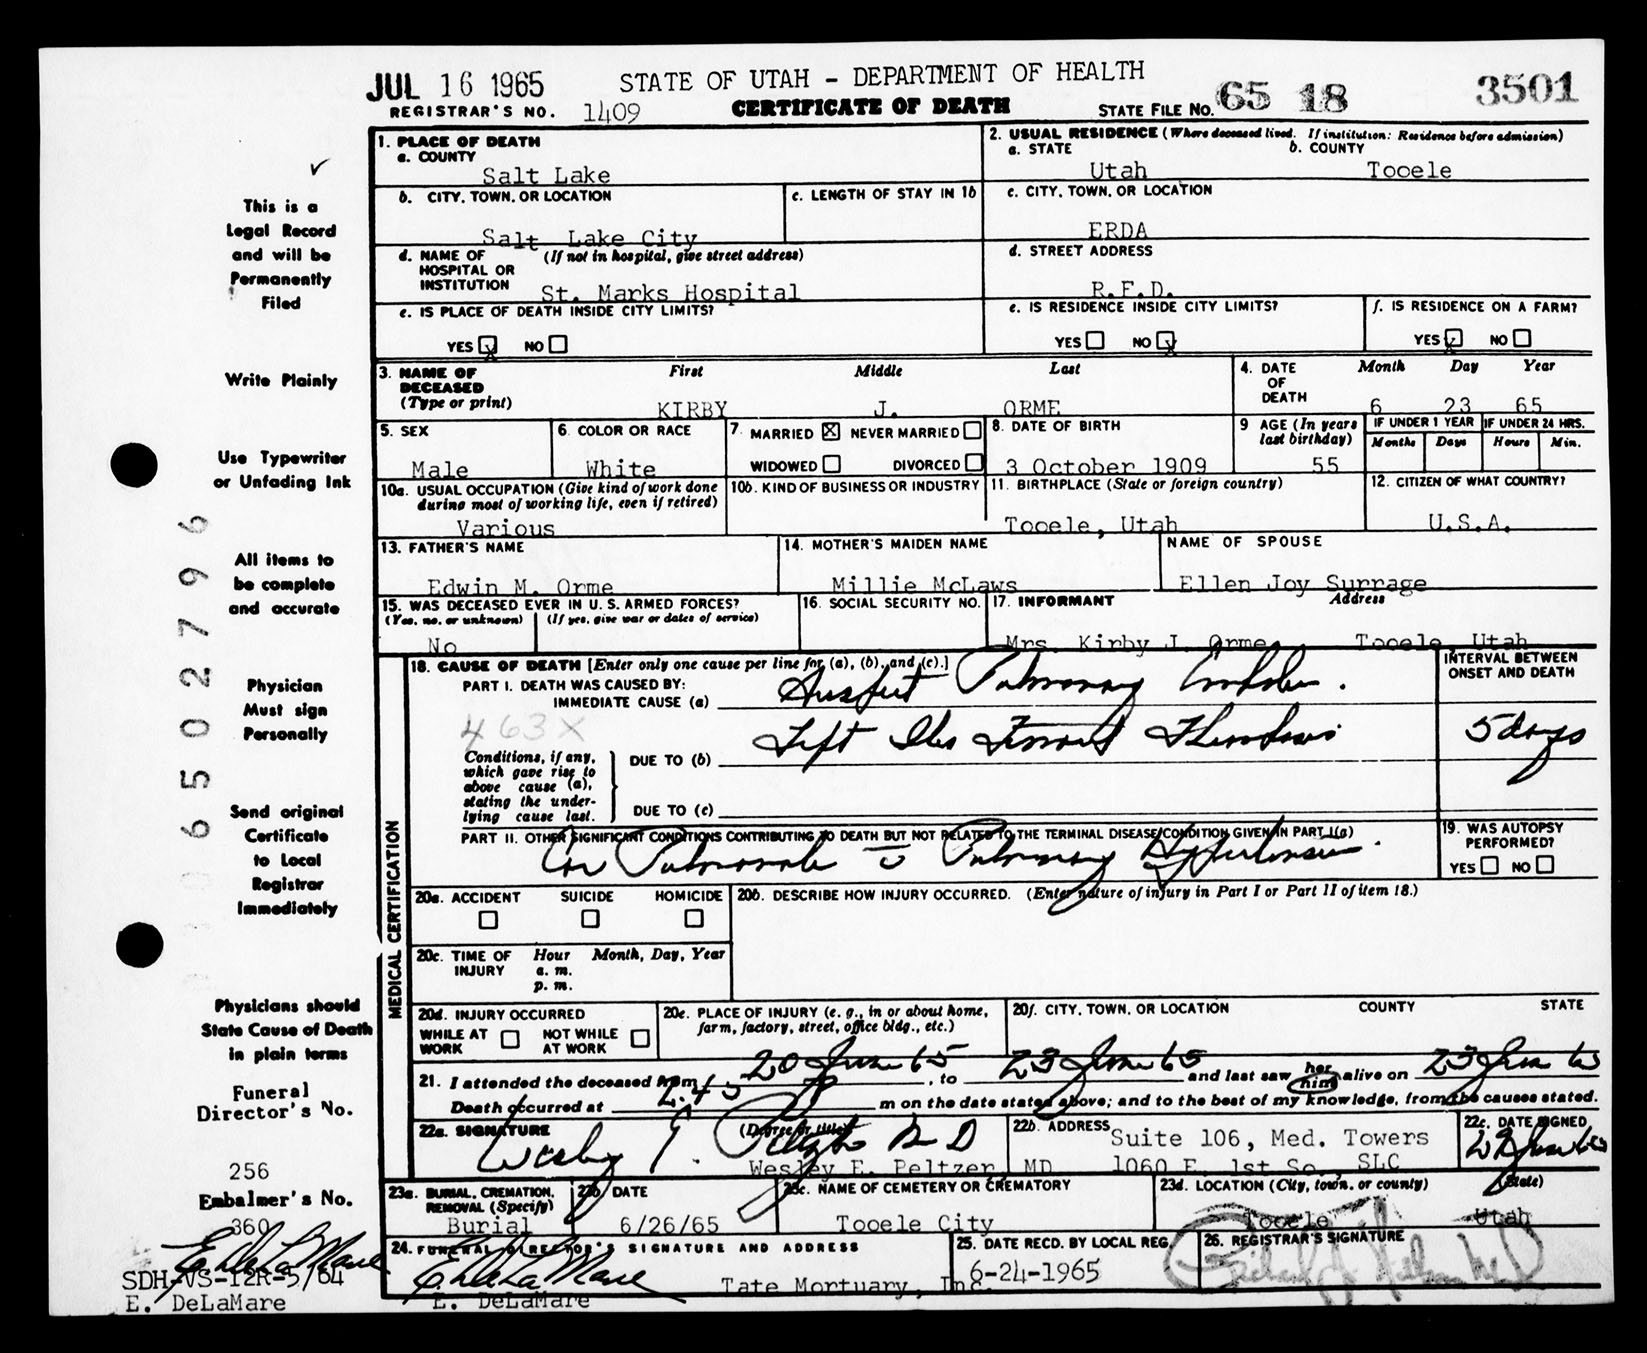 JUL 16 1965 STATE OF UTAH - DEPARTMENT OF HEALTH 3501
REGISTRAR'S NO. 1409 CERTIFICATE OF DEATH STATE FILE NO. 65 18
1. PLACE OF DEATH
a. COUNTY
Salt Lake
2. USUAL RESIDENCE (Where deceased lived. If institution: Residence before admission)
a. STATE b. COUNTY
Utah Tooele
b. CITY, TOWN, OR LOCATION c. LENGTH OF STAY IN 1b
Salt Lake City
c. CITY, TOWN, OR LOCATION
ERDA
d. NAME OF (If not in hospital, give street address)
HOSPITAL OR
INSTITUTION St. Marks Hospital
d. STREET ADDRESS
R.F.D.
e. IS PLACE OF DEATH INSIDE CITY LIMITS?
YES x NO
e. IS RESIDENCE INSIDE CITY LIMITS?
YES NO x
f. IS RESIDENCE ON A FARM?
YES x NO
3. NAME OF First Middle Last
DECEASED
(Type or print) KIRBY J. ORME
4. DATE Month Day Year
OF
DEATH 6 23 65
5. SEX
Male
6. COLOR OR RACE
White
7. MARRIED X NEVER MARRIED
WIDOWED DIVORCED
8. DATE OF BIRTH
3 October 1909
9 AGE (In years
last birthday)
55
IF UNDER 1 YEAR IF UNDER 24 HRS.
Months Days Hours Min.
10a. USUAL OCCUPATION (Give kind of work done
during most of working life, even if retired)
Various
10b. KIND OF BUSINESS OR INDUSTRY
11. BIRTHPLACE (State or foreign country)
Tooele, Utah
12. CITIZEN OF WHAT COUNTRY?
U.S.A.
13. FATHER'S NAME
Edwin M. Orme
14. MOTHER'S MAIDEN NAME
Millie McLaws
NAME OF SPOUSE
Ellen Joy Surrage
15. WAS DECEASED EVER IN U. S. ARMED FORCES?
(Yes, no, or unknown) (If yes, give war or dates of service)
No
16. SOCIAL SECURITY NO.
17. INFORMANT Address
Mrs. Kirby J. Orme Tooele, Utah
MEDICAL CERTIFICATION
18. CAUSE OF DEATH [Enter only one cause per line for (a), (b), and (c).]
INTERVAL BETWEEN
ONSET AND DEATH
PART I. DEATH WAS CAUSED BY:
IMMEDIATE CAUSE (a) Suspect Pulmonary Embolus.
463X
Conditions, if any,
which gave rise to
above cause (a),
stating the under-
lying cause last.
DUE TO (b) Left Ileo Femoral Thrombosis 5 days
DUE TO (c)
PART II. OTHER SIGNIFICANT CONDITIONS CONTRIBUTING TO DEATH BUT NOT RELATED TO THE TERMINAL DISEASE CONDITION GIVEN IN PART I(a)
Cor Pulmonale c̄ Pulmonary Hypertension.
19. WAS AUTOPSY
PERFORMED?
YES NO
20a. ACCIDENT SUICIDE HOMICIDE
20b. DESCRIBE HOW INJURY OCCURRED. (Enter nature of injury in Part I or Part II of item 18.)
20c. TIME OF Hour Month, Day, Year
INJURY a. m.
p. m.
20d. INJURY OCCURRED
WHILE AT NOT WHILE
WORK AT WORK
20e. PLACE OF INJURY (e. g., in or about home,
farm, factory, street, office bldg., etc.)
20f. CITY, TOWN, OR LOCATION COUNTY STATE
21. I attended the deceased from 20 June 65, to 23 June 65 and last saw her him alive on 23 June 65
Death occurred at 2:45 p m on the date stated above; and to the best of my knowledge, from the causes stated.
22a. SIGNATURE (Degree or title)
Wesley E. Peltzer M D
Wesley E. Peltzer, MD
22b. ADDRESS Suite 106, Med. Towers
1060 E. 1st So., SLC
22c. DATE SIGNED
23a. BURIAL, CREMATION,
REMOVAL (Specify)
Burial
23b. DATE
6/26/65
23c. NAME OF CEMETERY OR CREMATORY
Tooele City
23d. LOCATION (City, town, or county) (State)
Tooele Utah
24. FUNERAL DIRECTOR'S SIGNATURE AND ADDRESS
E. DeLaMare
Tate Mortuary, Inc.
E. DeLaMare
25. DATE RECD. BY LOCAL REG.
6-24-1965
26. REGISTRAR'S SIGNATURE
This is a
Legal Record
and will be
Permanently
Filed
Write Plainly
Use Typewriter
or Unfading Ink
All items to
be complete
and accurate
Physician
Must sign
Personally
Send original
Certificate
to Local
Registrar
Immediately
Physicians should
State Cause of Death
in plain terms
Funeral
Director's No.
256
Embalmer's No.
360
E. DeLaMare
SDH-VS-12R-5/64
E. DeLaMare
065027 96